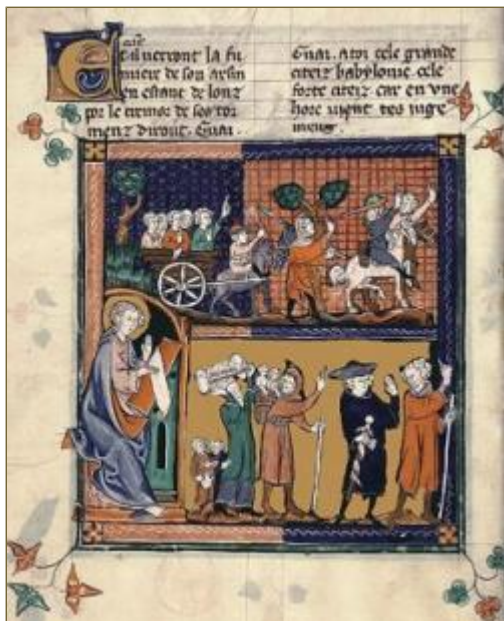 Et il verront la fu
miere de son arsin
en estant de lonz
por le cremor de ses tor
menz diront. Guai.
Guai. a toi cele grande
citeiz babylonie. cele
forte citeiz car en vne
hore vient tes iuge
menz.